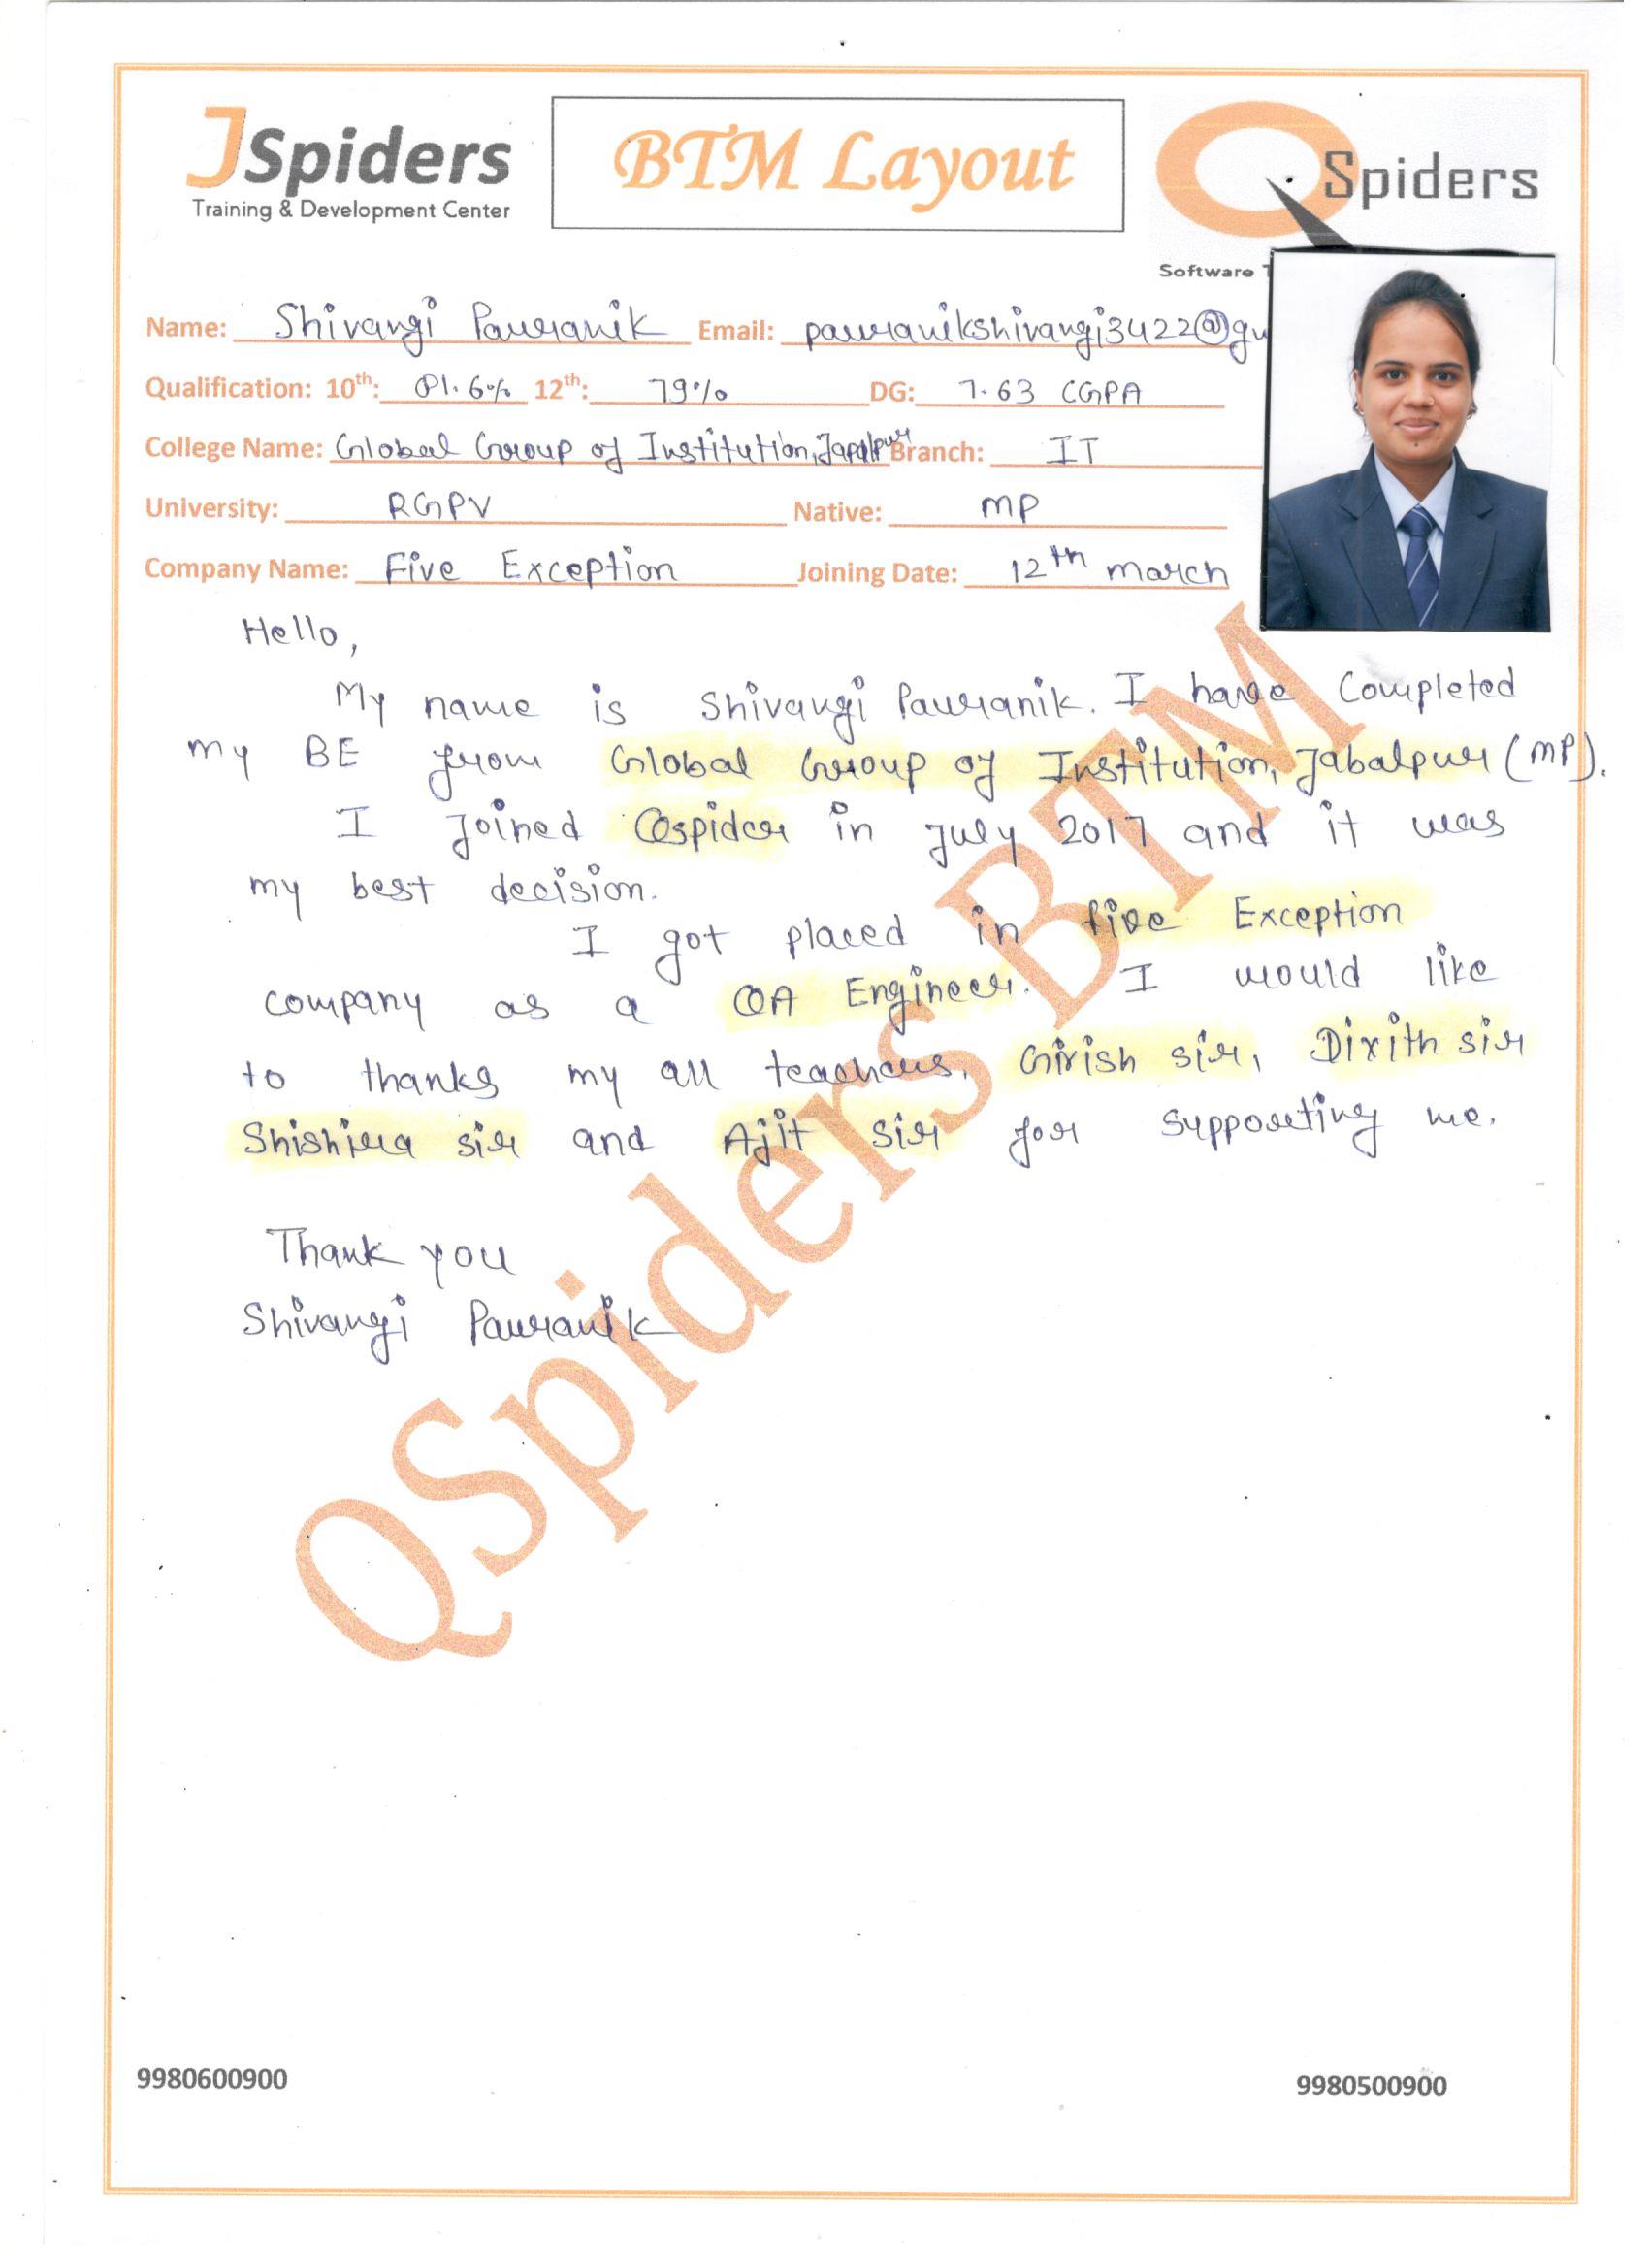 JSpiders
Training & Development Center
BTM Layout
QSpiders
Software
Name: Shivangi Pauranik Email: pauranikshivangi3422@gm
Qualification: 10th: 81.6% 12th: 79% DG: 7.63 CGPA
College Name: Global Group of Institution, Branch: IT
University: RGPV Native: MP
Company Name: Five Exception Joining Date: 12th march
Hello,
My name is Shivangi Pauranik. I have Completed
my BE from Global Group of Institution, Jabalpur (MP).
I Joined Qspider in July 2017 and it was
my best decision.
I got placed in five Exception
company as a QA Engineer. I would like
to thanks my all teachers, Girish sir, Dixith sir
Shishira sir and Ajit sir for supporting me.
Thank you
Shivangi Pauranik
QSpiders BTM
9980600900 9980500900